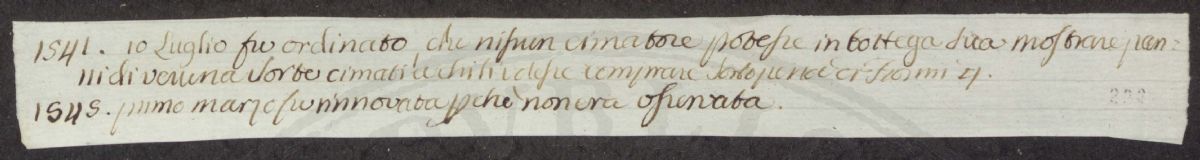 1541. 10 Luglio fu ordinato, che nissun cimatore potesse in bottega sua mostrare pan=
ni di veruna sorte cimati a chi li volesse comprare sotto pena di fiorini 4.
1545. primo marzo fu rinnovata pchè non era osservata.
233